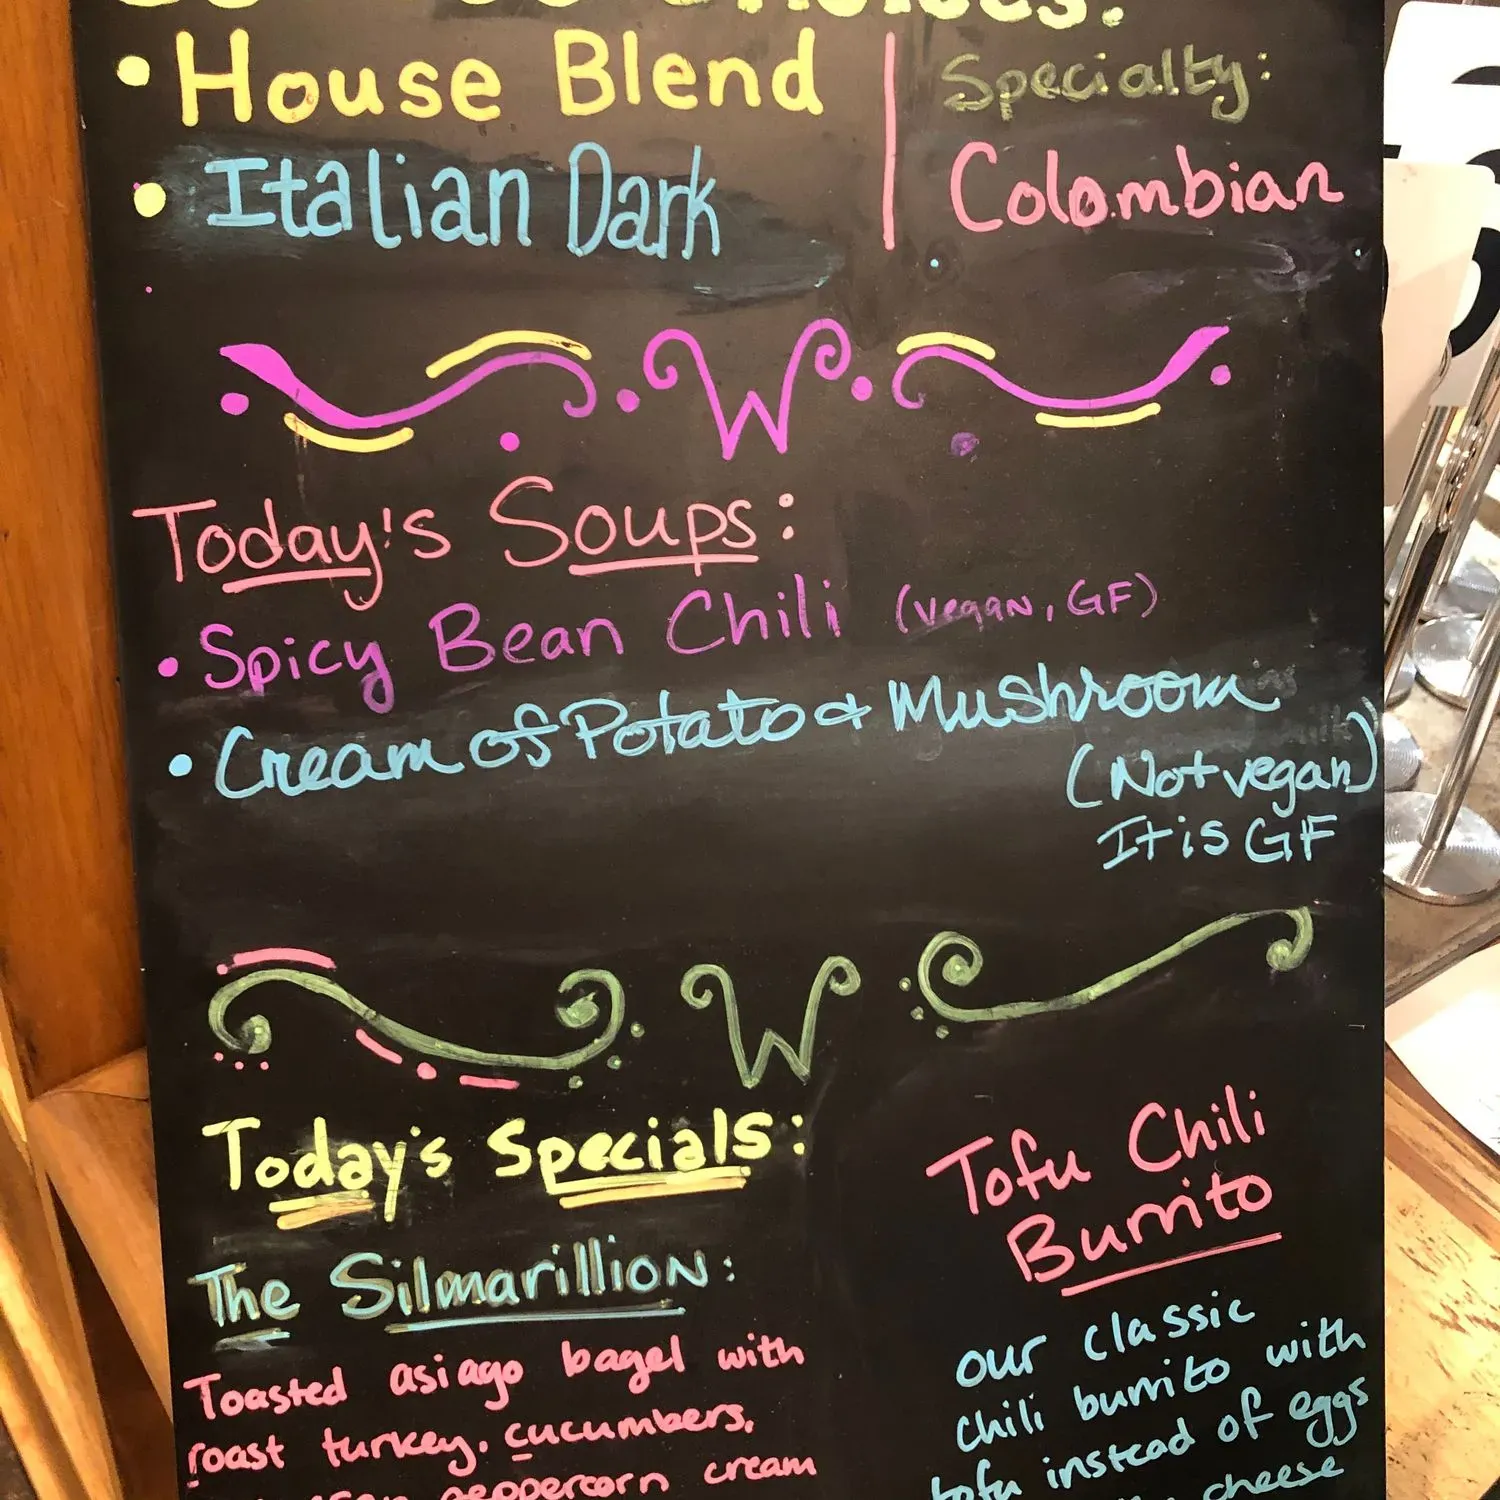 • House Blend
• Italian Dark
Specialty:
Colombian
W
Today's Soups:
• Spicy Bean Chili (vegan, GF)
• Cream of Potato & Mushroom
(Not vegan)
It is GF
W
Today's Specials:
The Silmarillion:
Toasted asiago bagel with
roast turkey, cucumbers,
peppercorn cream
Tofu Chili
Burrito
our classic
chili burrito with
tofu instead of eggs
cheese